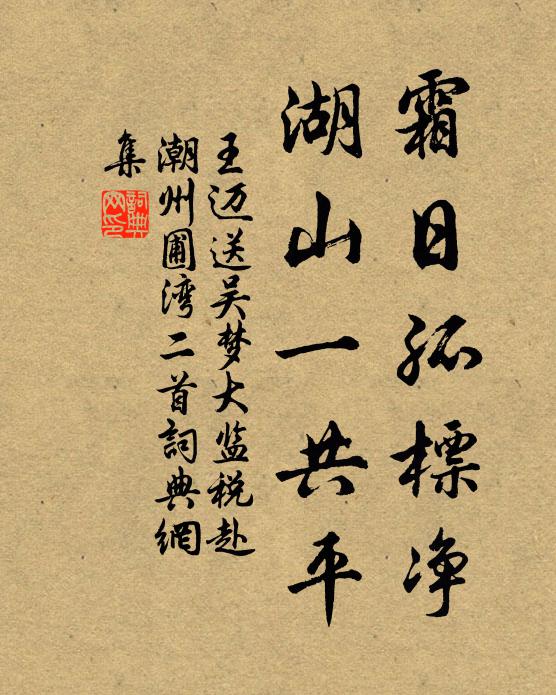 霜日孤標净
湖山一共平
王迈送吴梦大监税赴
潮州圃湾二首詞典網
集
詞典网印